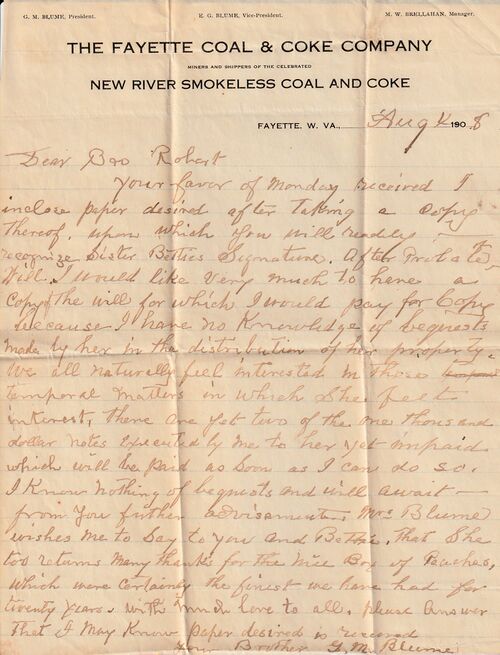 G. M. BLUME, President. E. G. BLUME, Vice-President. M. W. BRELLAHAN, Manager.
THE FAYETTE COAL & COKE COMPANY
MINERS AND SHIPPERS OF THE CELEBRATED
NEW RIVER SMOKELESS COAL AND COKE
FAYETTE, W. VA., Aug 4 1908
Dear Bro Robert
Your favor of Monday received I
inclose paper desired after taking a copy
thereof, upon which you will readily
recognize Sister Betties Signature. After Probate of
Will. I would like very much to have a
copy of the will for which I would pay for Copy
because I have no Knowledge of bequests
made by her in the distribution of her property.
We all naturally feel interested in those
temporal matters in which she felt
interest, there are yet two of the one thousand
dollar notes executed by me to her yet unpaid
which will be paid as soon as I can do so.
I Know nothing of bequests and will await
from you further advisement. Mrs Blume
wishes me to Say to you and Bettie, that She
too returns many thanks for the nice Box of Peaches,
which were certainly the finest we have had for
twenty years. with much love to all, please answer
that I may Know paper desired is received
Your Brother G. M. Blume